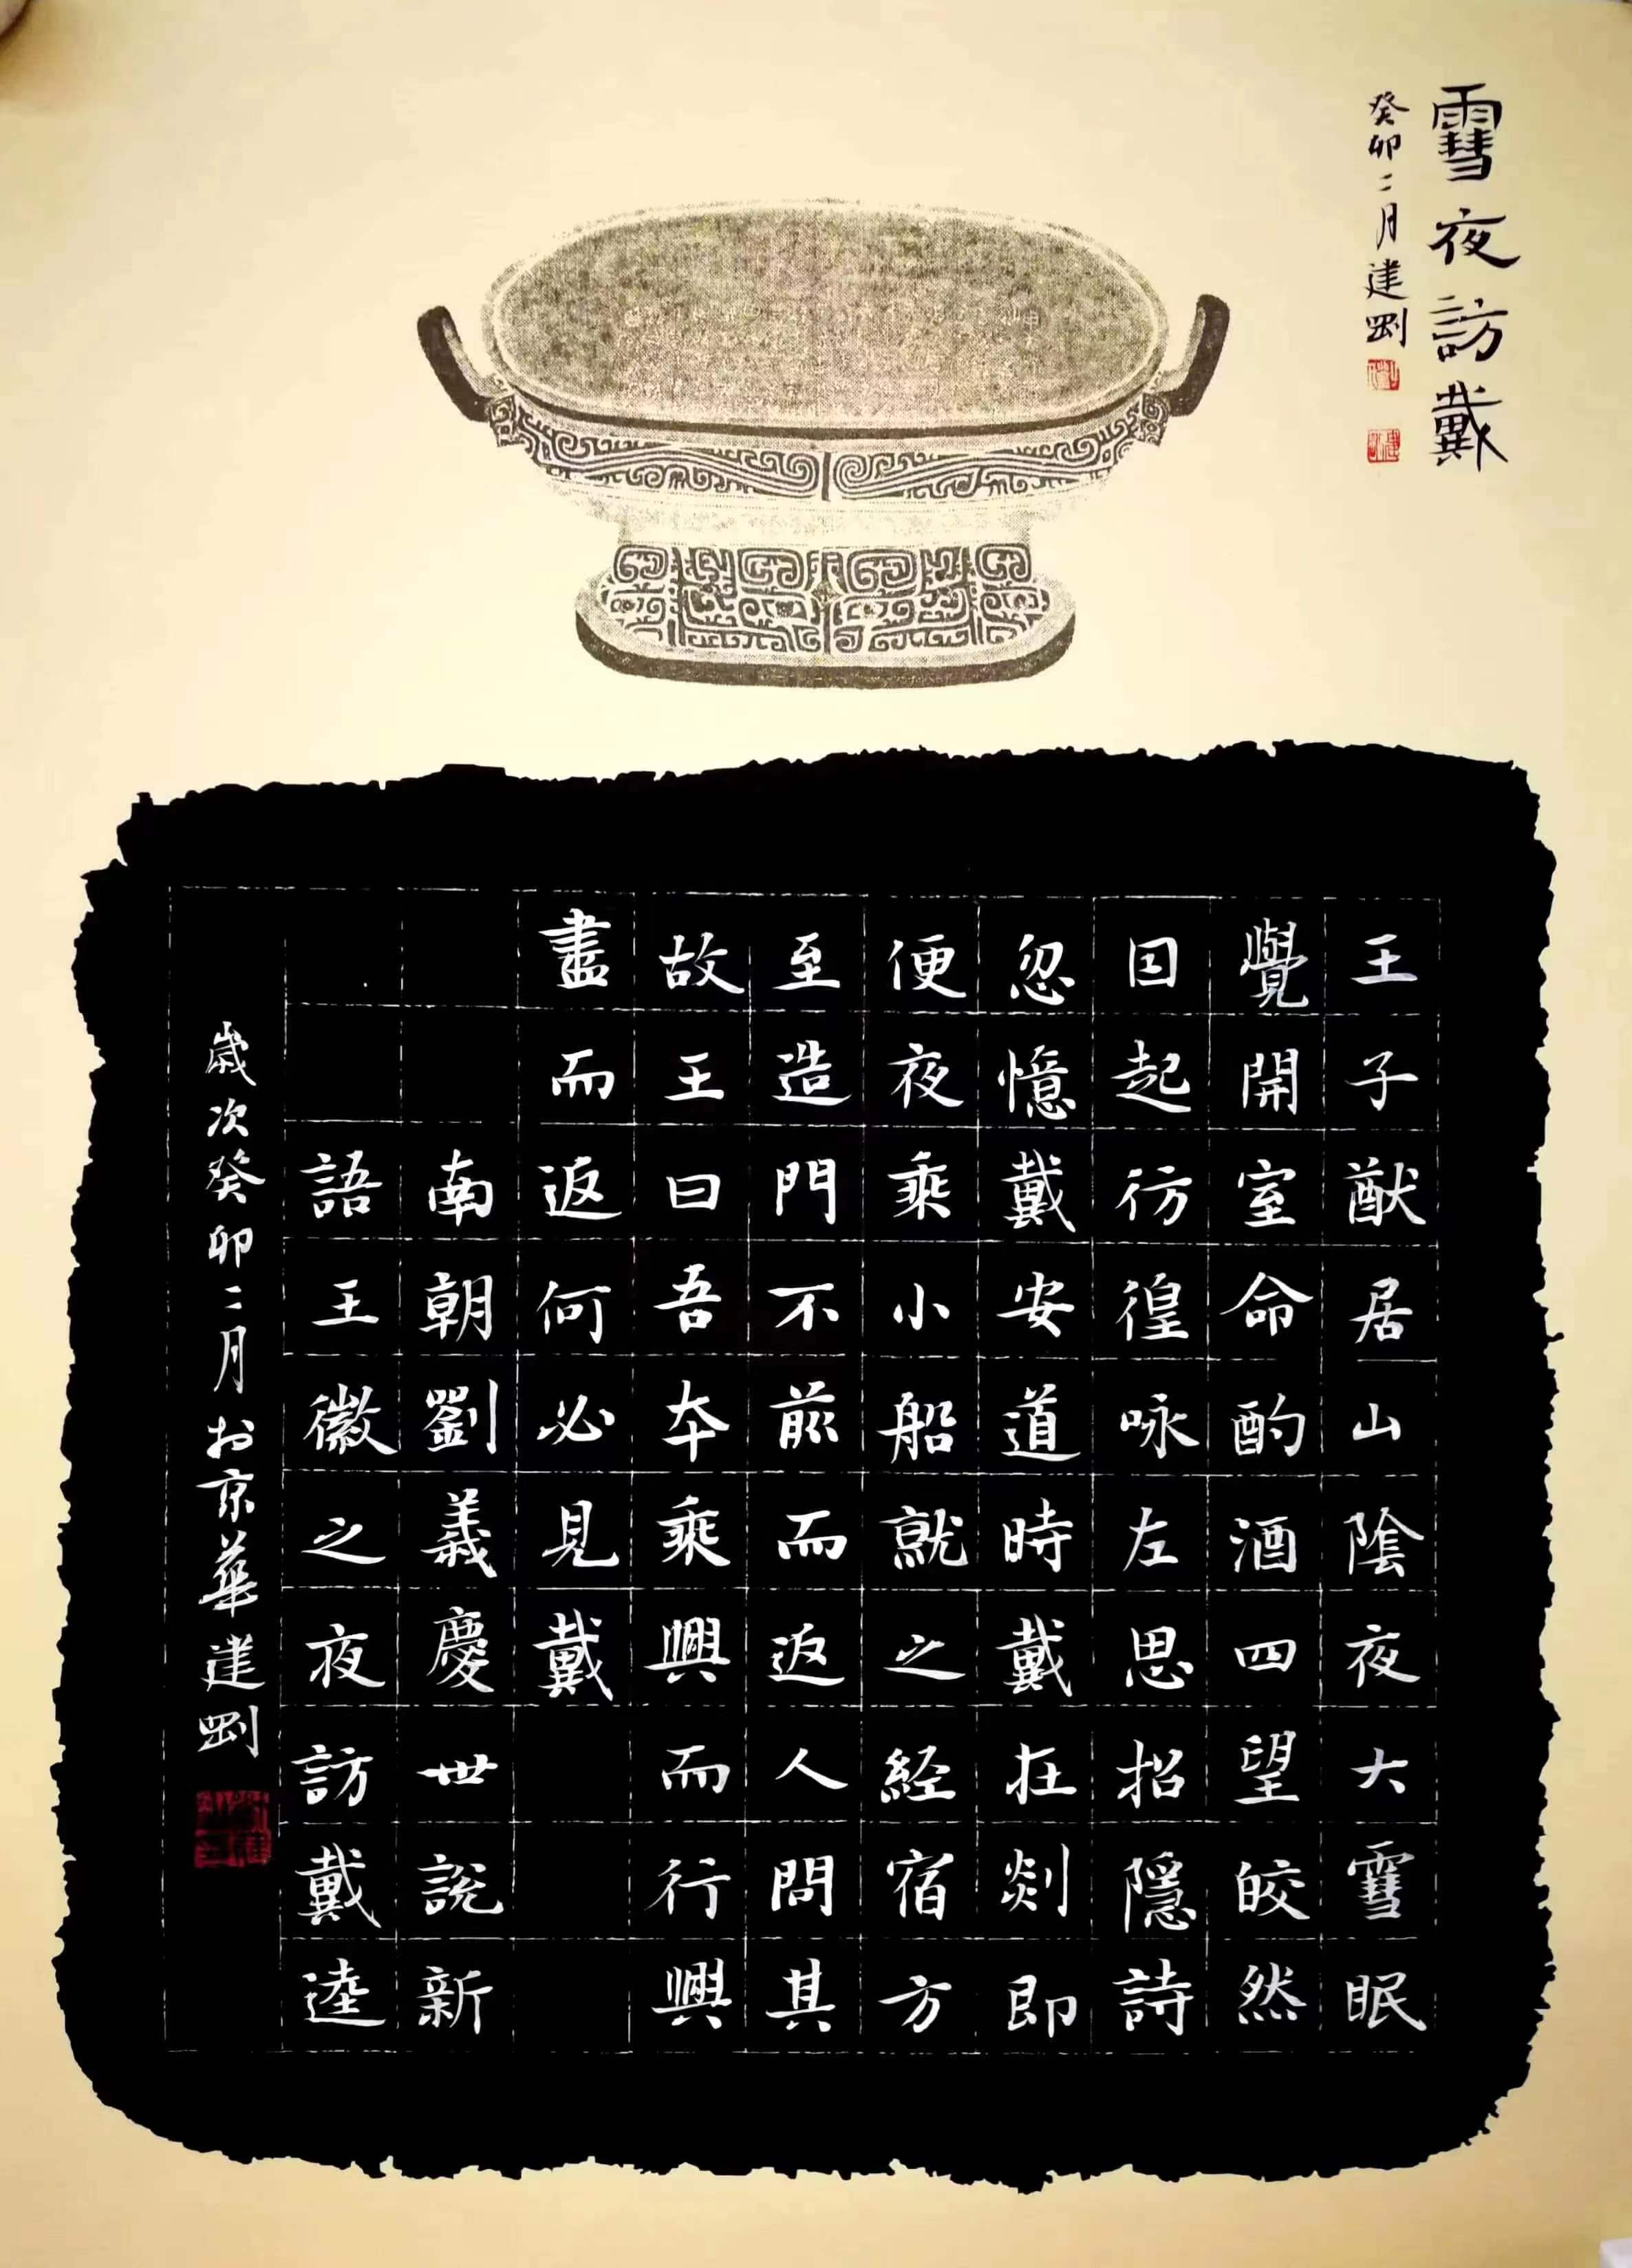 雪夜訪戴
癸卯二月建剛
王子猷居山陰夜大雪眠
覺開室命酌酒四望皎然
因起彷徨咏左思招隱詩
忽憶戴安道時戴在剡即
便夜乘小船就之經宿方
至造門不前而返人問其
故王曰吾本乘興而行興
盡而返何必見戴
南朝劉義慶世說新
語王徽之夜訪戴逵
歲次癸卯二月於京華建剛